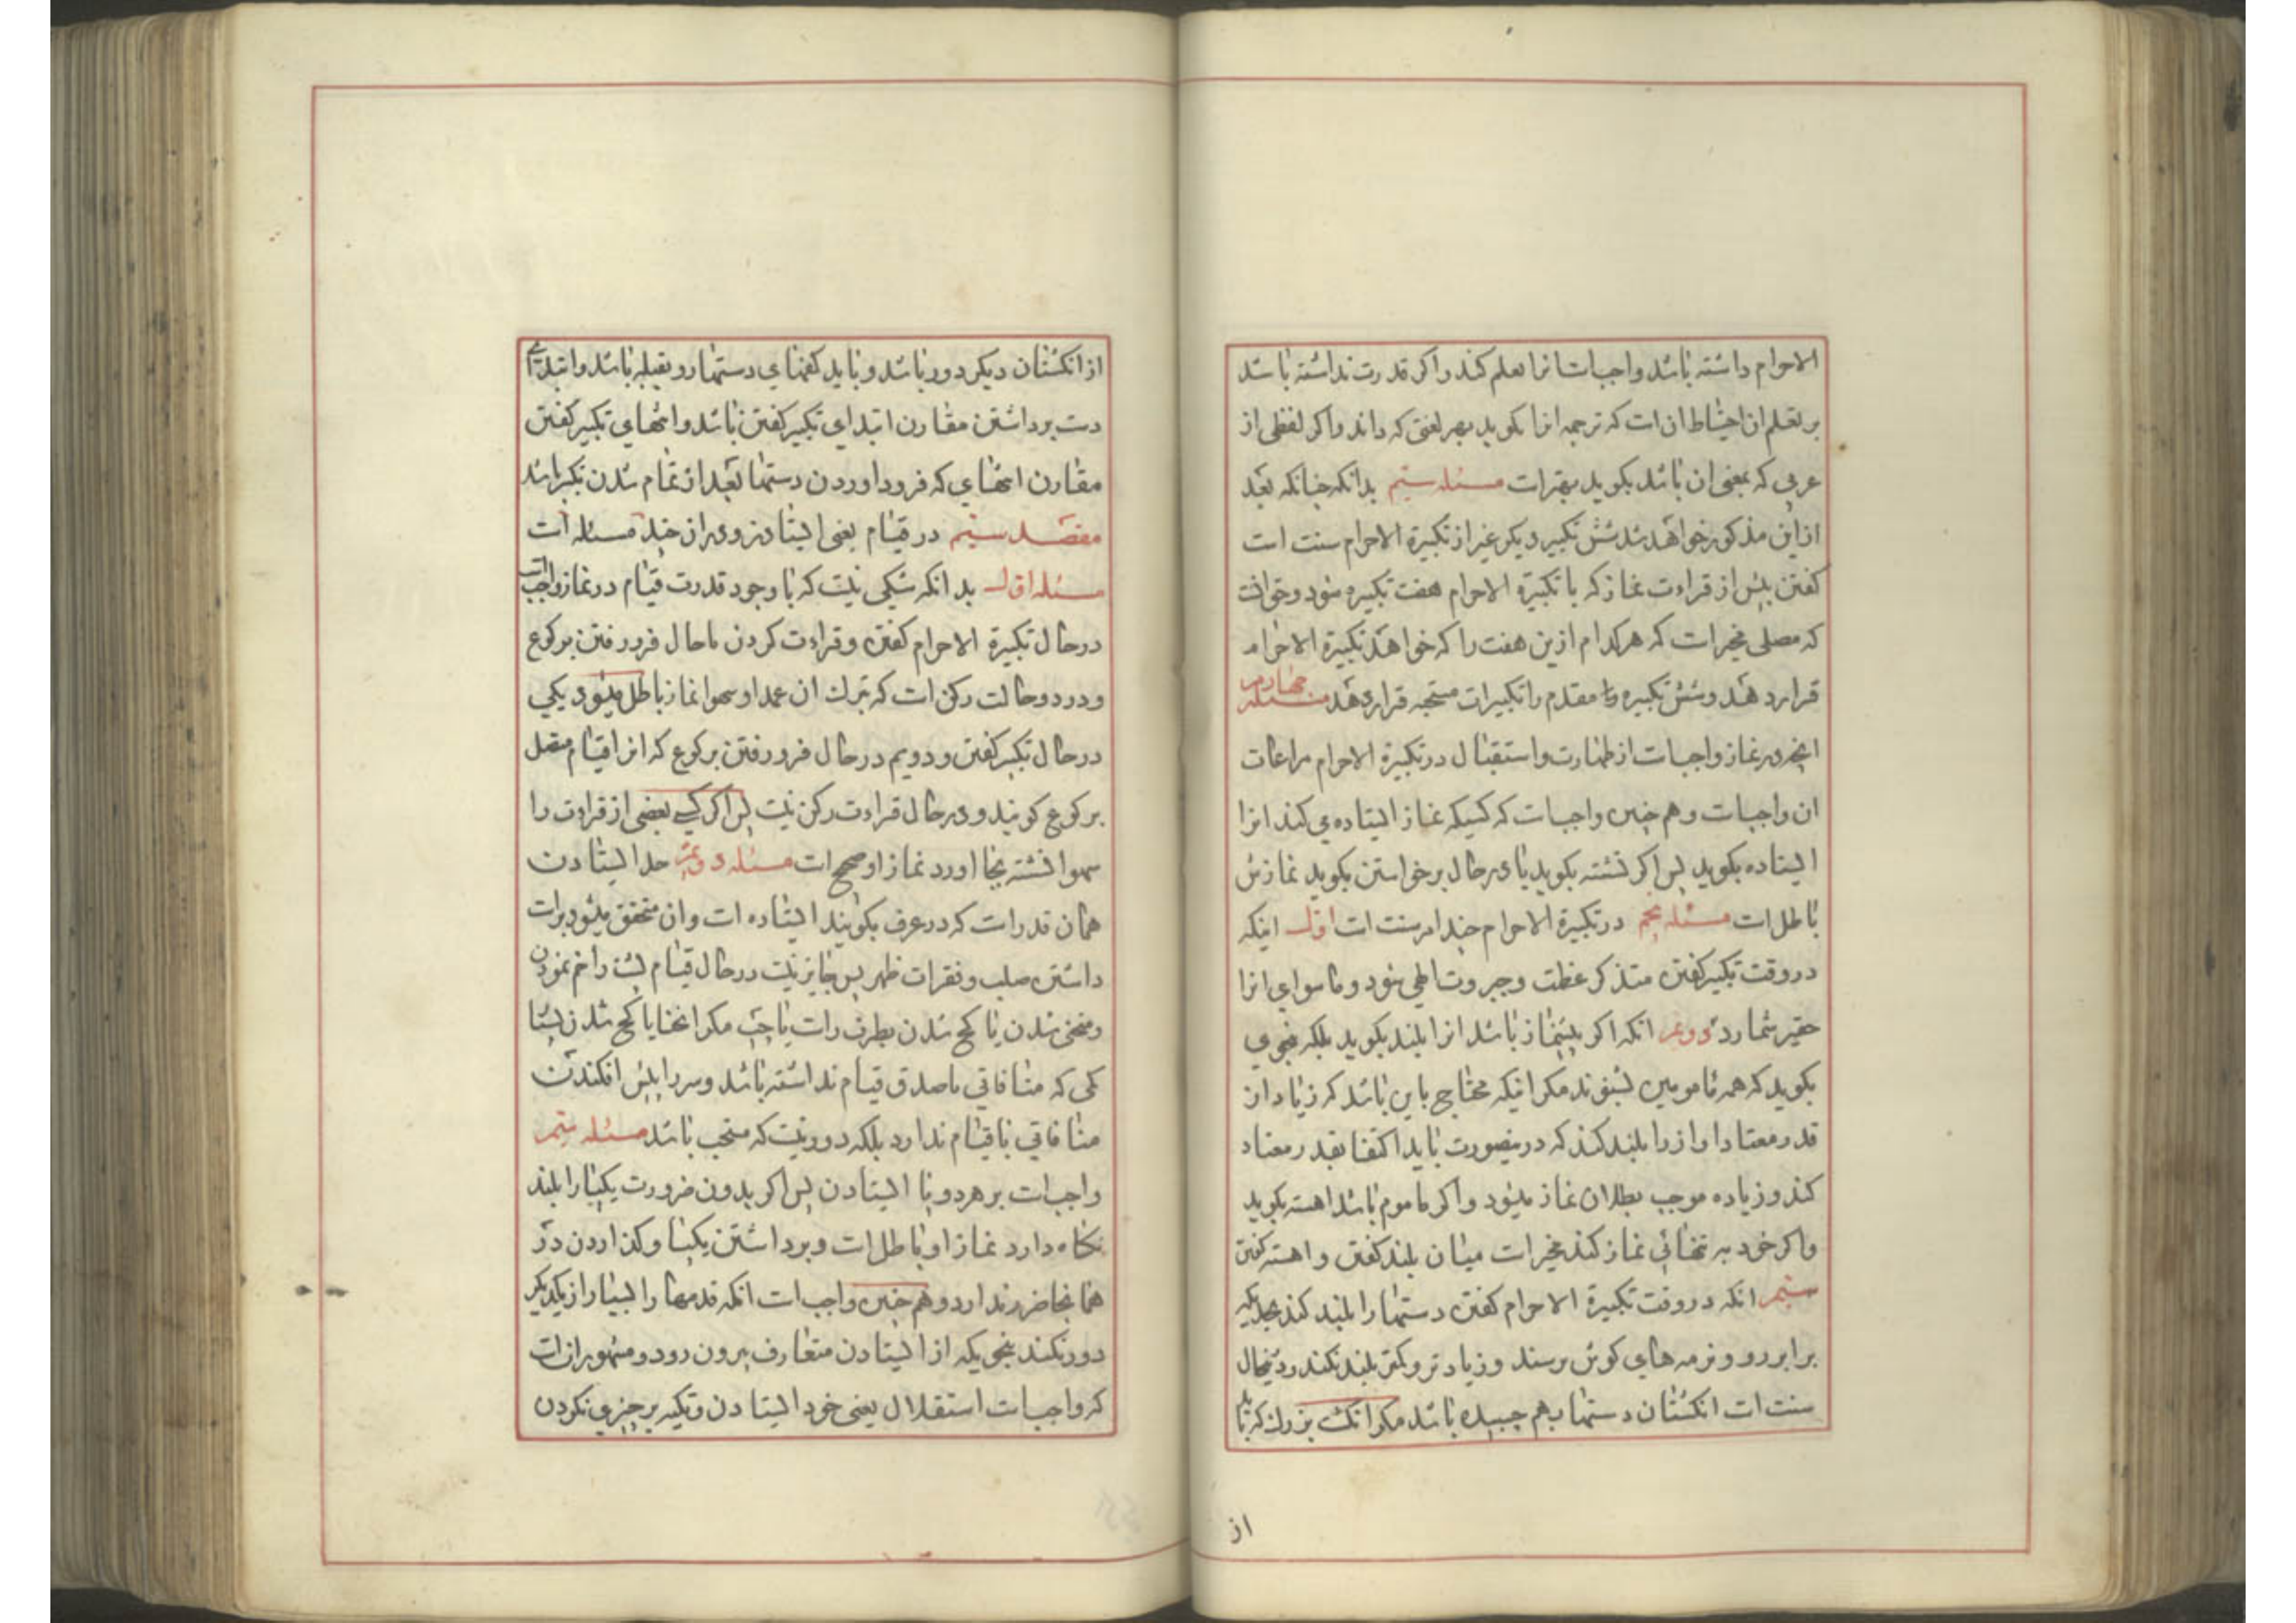 الاحرام داشته باشد واجبات انرا تعلم کند و اکر قدرت نداشته باشد
بر تعلم ان احتیاط ان است که ترجمه انرا بکوید بهر لغتی که داند و اکر لفظی از
عربی که بمعنی ان باشد بکوید بهتر است مسئله سیم بدانکه چنانکه بعد
از این مذکور خواهد شد شش تکبیر دیکر غیر از تکبیرة الاحرام سنت است
کفتن پیش از قراءت نماز که با تکبیرة الاحرام هفت تکبیره شود و حق انست
که مصلی مخیر است که هر کدام ازین هفت را که خواهد تکبیرة الاحرام
قرار دهد و شش تکبیره مقدم را تکبیرات مستحبه قرار دهد مسئله چهارم
انچه در نماز واجب است از طهارت و استقبال در تکبیرة الاحرام مراعات
ان واجب است و هم چنین واجب است که کسیکه نماز ایستاده می کند انرا
ایستاده بکوید پس اکر نشسته بکوید یا در حال برخواستن بکوید نمازش
باطل است مسئله پنجم در تکبیرة الاحرام چند امر سنت است اول اینکه
در وقت تکبیر کفتن متذکر عظمت و جبروت الهی شود و ماسوای انرا
حقیر شمارد دویم انکه اکر پیشنماز باشد انرا بلند بکوید بلکه بنحوی
بکوید که همه مامومین بشنوند مکر اینکه محتاج باین باشد که زیاد از
قدر معتاد اواز را بلند کند که درینصورت باید اکتفا بقدر معتاد
کند و زیاده موجب بطلان نماز میشود و اکر ماموم باشد اهسته بکوید
و اکر خود به تنهائی نماز کند مخیر است میان بلند کفتن و اهسته کفتن
سیم انکه در وقت تکبیرة الاحرام کفتن دستها را بلند کند بحدیکه
برابر رو و نرمه های کوش برسند و زیادتر و کمتر بلند نکند و درینحال
سنت است انکشتان دستها بهم چسبیده باشد مکر انکشت بزرک که باید
از
از انکشتان دیکر دور باشد و باید کفهای دستها رو بقبله باشد و ابتدای
دست برداشتن مقارن ابتدای تکبیر کفتن باشد و انتهای تکبیر کفتن
مقارن انتهای که فرود اوردن دستها بعد از تمام شدن تکبیر باشد
مقصد سیم در قیام یعنی ایستادن و در ان چند مسئله است
مسئله اول بدانکه شکی نیست که با وجود قدرت قیام در نماز واجب است
در حال تکبیرة الاحرام کفتن و قراءت کردن تا حال فرو رفتن برکوع
و در دو حالت رکن است که بترک ان عمدا و سهوا نماز باطل میشود یکی
در حال تکبیر کفتن و دویم در حال فرو رفتن برکوع که انرا قیام متصل
برکوع کویند و در حال قراءت رکن نیست پس اکر کسی بعضی از قراءت را
سهوا نشسته بجا اورد نماز او صحیح است مسئله دویم حد ایستادن
همان قدر است که در عرف بکویند ایستاده است و ان متحقق میشود براست
داشتن صلب و فقرات ظهر پس جایز نیست در حال قیام پشت را خم نمودن
و منحنی شدن یا کج شدن بطرف راست یا چپ مکر انحنا یا کج شدن بسیار
کمی که منافاتی با صدق قیام نداشته باشد و سر را پیش افکندن
منافاتی با قیام ندارد بلکه دور نیست که مستحب باشد مسئله سیم
واجب است بر هر دو پا ایستادن پس اکر بدون ضرورت یکپا را بلند
نکاه دارد نماز او باطل است و برداشتن یکپا و کذاردن در
همانجا ضرر ندارد و هم چنین واجب است انکه قدمها را بسیار از یکدیکر
دور نکند بنحویکه از ایستادن متعارف بیرون رود و مشهور ان است
که واجب است استقلال یعنی خود ایستادن و تکیه بر چیزی نکردن